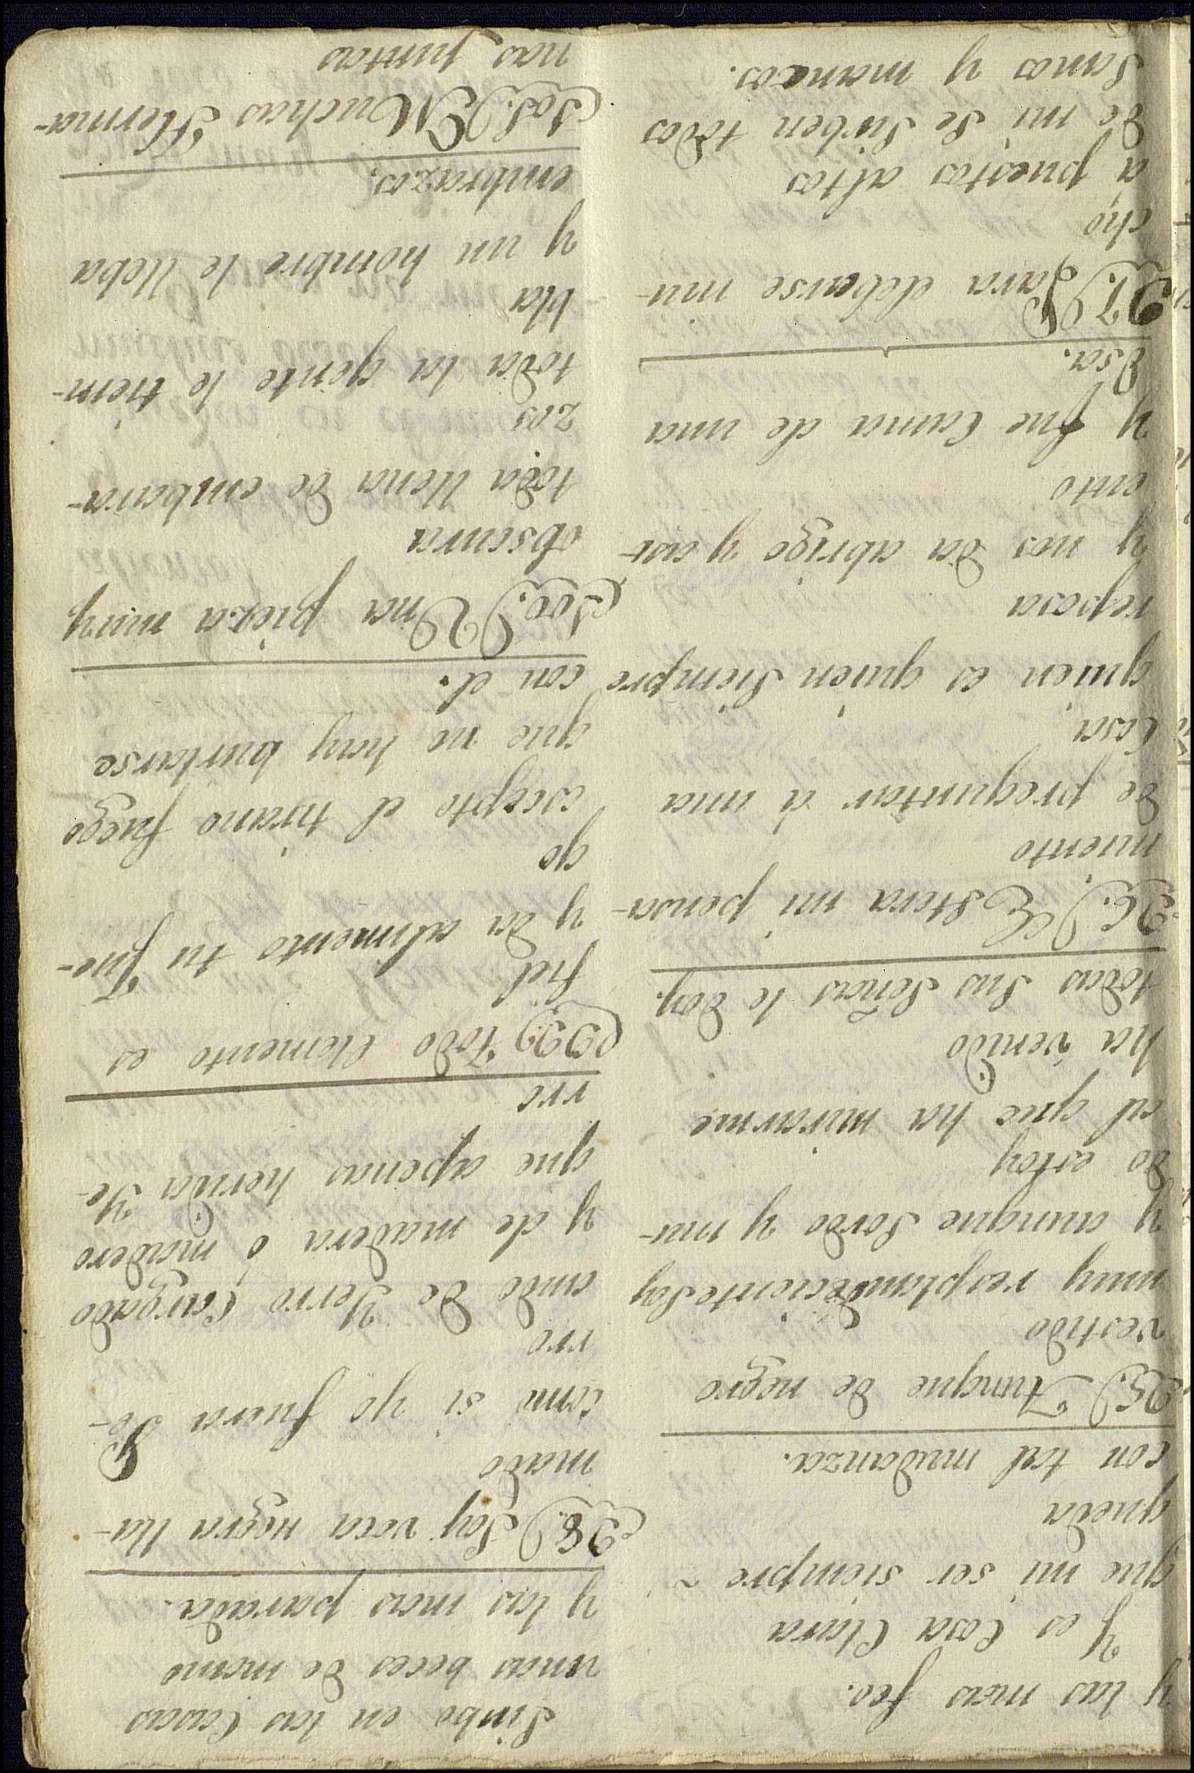 y las mas feo.
Y es Cosa Clara
que mi ser siempre ~
queda
con tal mudanza.
95.) Aunque de negro
vestido
muy resplandeciente Soy
Y aunque Sordo y mu-
do estoy
al que ha mirarme
ha venido
todas sus Señas le doy.
96.) Estera mi pensa-
miento
de preguntar á una
Cosa
quien es quien Siempre
reposa
y nos da abrigo y asi-
ento
y fue Cama de una
Osa.
97.) Para elebarse mu-
cho
a puestos altos
de mi se Sirben todos
Sanos y mancos.
Sirbo en las Casas
unas beces de mano
y las mas parada.
98.) Soy vaca negra lla-
mado
como si yo fuera Pe-
rro
ando de Yerro Cargado
y de madera ó madero
que apenas herida Ye-
rre
99.) Todo Elemento es
fiel
y da alimento tu Jue-
go
ecepto el tirano fuego
que no hay burlarse
con el.
100.) Una pieza muy
obscura
toda llena de embara-
zos
toda la gente le tiem-
bla
y un hombre le lleba
embrazos.
101.) Muchas Herma-
nas juntas